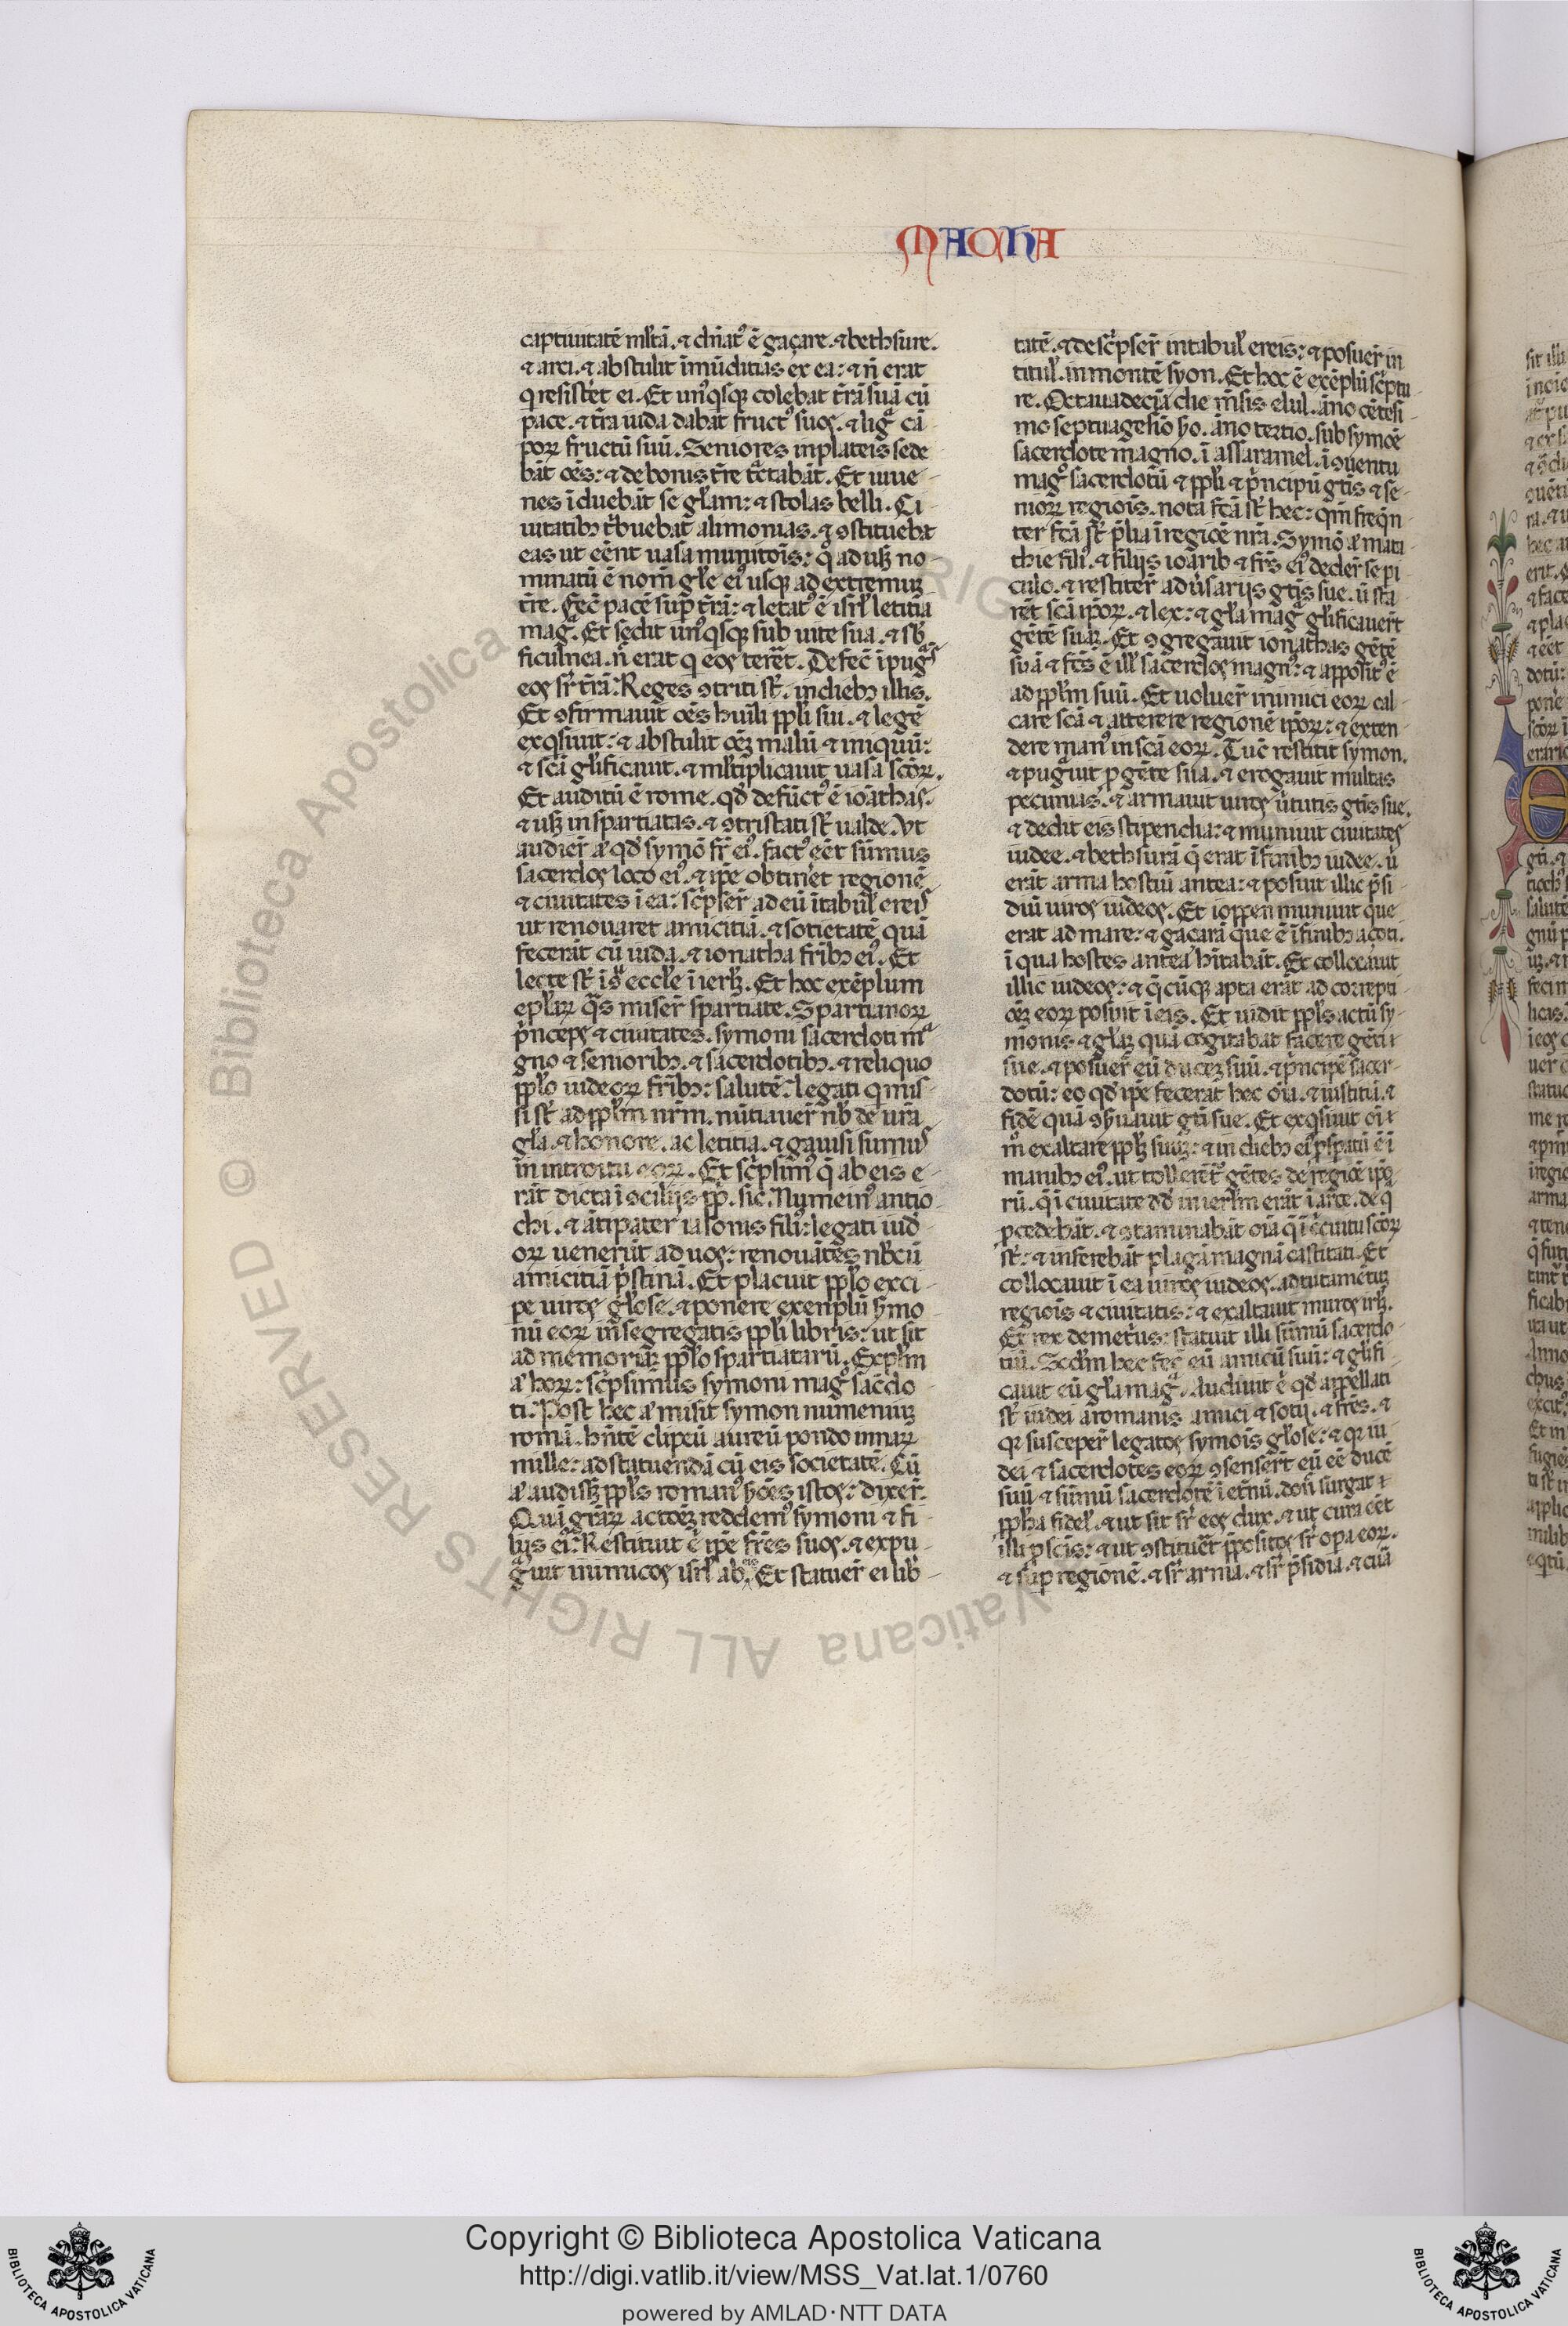 MACHA
captiuitatē ml̄tā. ⁊ dn̄atꝰ ē gaçare. ⁊ bethsure.
⁊ arci. ⁊ abstulit īmūditias ex ea: ⁊ n̄ erat
q resistēt ei. Et unꝰqsqꝫ colebat t̄rā suā cū
pace. ⁊ t̄ra iuda dabat fructꝰ suos. ⁊ lig cā
porꝝ fructū suū. Seniores in plateis sede
bāt oēs: ⁊ de bonis t̄re tͣctabāt. Et iuue
nes īduebāt se gl̄am: ⁊ stolas belli. Ci
uitatibꝫ tͥbuebat alimonias. ⁊ ꝯstituebat
eas ut eēnt uasa munitōis: qͦ ad usqꝫ no
minatū ē nom̄ gl̄e eiꝰ usqꝫ ad extremuꝫ
t̄re. Fec̄ pacē sup̄ t̄rā: ⁊ letatꝰ ē isrl̄ letitia
magͣ. Et sedit unꝰqsqꝫ sub uite sua. ⁊ sb̄
ficulnea. n̄ erat q eos terēt. Defec̄ īpugͣs
eos sr̄ t̄rā: Reges ꝯtriti st̄. in diebꝫ illis.
Et ꝯfirmauit oēs huīli ppl̄i sui. ⁊ legē
exqsiuit: ⁊ abstulit oēꝫ malū ⁊ iniquū:
⁊ scā gl̄ificauit. ⁊ ml̄tiplicauit uasa scōrꝝ.
Et auditū ē rome. qd̄ defūctꝰ ē ionathas.
⁊ usqꝫ in spartiatas. ⁊ ꝯtristati st̄ ualde. Vt
audier̄ aͣ qd̄ symō fr̄ eiꝰ. factꝰ eēt sūmus
sacerdos loco eiꝰ. ⁊ ip̄e obtinēt regionē
⁊ ciuitates ī ea: scͥpser̄ ad eū ītabul̄ ereis
ut renouaret amicitiā. ⁊ sotietatē quā
fecerāt cū iuda. ⁊ ionatha fribꝫ eiꝰ. Et
lecte st̄ ī ꝯsp̄ eccl̄e ī ierl̄ꝫ. Et hoc exēplum
epl̄arꝝ qͣs miser̄ spartiate. Spartianorꝝ
pͥnceps ⁊ ciuitates. symoni sacerdoti mͣ
gno ⁊ senioribꝫ. ⁊ sacerdotibꝫ. ⁊ reliquo
ppl̄o iudeorꝝ fribꝫ: salutē. Legati q mis
si st̄ ad ppl̄m nrm̄. nūtiauer̄ nb̄ de ura
gl̄a. ⁊ honore. ac letitia. ⁊ gauisi sumus
in introitu eorꝝ. Et scͥpsimꝰ q̄ ab eis e
rāt dicta ī ꝯciliis pp̄. sic. Numeinꝰ antio
chi. ⁊ ātipater iasonis filiꝰ: legati iud
orꝝ uenerūt ad uos: renouātes nb̄cū
amicitiā pͥstinā. Et placuit ppl̄o exci
pe uiros gl̄ose. ⁊ ponere exenplū s̄mo
nū eorꝝ in segregatis ppl̄i libris: ut sit
ad memoriaꝫ ppl̄o spartiatarū. Expl̄m
aͣ horꝝ: scͥpsimus symoni magͦ sac̄do
ti. Post hec aͣ misit symon numeniuꝫ
romā. hn̄tē clipeū aureū pondo mnarꝝ
mille: ad statuendā cū eis societatē. Cū
aͣ audisꝫ ppl̄s romanꝰ s̄oēs istos: dixer̄.
Quā grār̄ actōēꝫ reddemꝰ symoni ⁊ fi
liis eiꝰ. Restituit ē ip̄e fr̄es suos. ⁊ expu
gͣuit inimicos isrl̄ ab eis. Et statuer̄ ei lib
tatē. ⁊ descͥpser̄ in tabul̄ ereis: ⁊ posuer̄ in
titul̄. in montē syon. Et hoc ē exēplū scͥptu
re. Octauadecīa die mēsis elul. āno cētesi
mo septuagesiō s̄o. āno tertio. sub symōe
sacerdote magno. ī assaramel. ī ꝯuentu
magͦ sacerdotū ⁊ ppl̄i ⁊ pͥncipū gtis ⁊ se
niorꝝ regiois. nota fcā st̄ hec: qm̄ freqn̄
ter fcā st̄ p̄lia ī regiōe nr̄a. Symō aͣ mata
thie filiꝰ. ⁊ filiis ioarib ⁊ fr̄s eiꝰ deder̄ se pi
culo. ⁊ restiter̄ aduersariis gtis sue. ū sta
rēt scā ip̄orꝝ. ⁊ lex: ⁊ gl̄a magͣ gl̄ificauer̄t
gētē suaꝫ. Et ꝯgregauit ionathas gētē
suā ⁊ fc̄s ē ill̄ sacerdos magnꝰ: ⁊ appositꝰ ē
ad ppl̄m suū. Et uoluer̄ inimici eorꝝ cal
care scā ⁊ atterere regionē ip̄orꝝ: ⁊ exten
dere manꝰ in scā eorꝝ. Tuc̄ restitit symon.
⁊ pugͣuit p gēte sua. ⁊ erogauit multas
pecunias. ⁊ armauit uiros uͥtutis gtis sue.
⁊ dedit eis stipendia: ⁊ muniuit ciuitates
iudee. ⁊ bethsurā q̄ erat ī finibꝫ iudee. ū
erāt arma hostiū antea: ⁊ posuit illic p̄si
diū uiros iudeos. Et ioppen muniuit que
erat ad mare: ⁊ gaçarā que ē ī finibꝫ açoti.
ī qua hostes antea hītabāt. Et collocauit
illic iudeos: ⁊ q̄cūqꝫ apta erāt ad correpti
oēꝫ eorꝝ posuit ī eis. Et uidit ppl̄s actū sy
monis ⁊ gl̄aꝫ quā cogitabat facere gēti
sue. ⁊ posuer̄ eū duceꝫ suū. ⁊ pͥncipē sacer
dotū: eo qd̄ ip̄e fecerāt hec oīa. ⁊ iustitiā. ⁊
fidē quā ꝯs̄uauit gti sue. Et exqsiuit oī
mͦ exaltare ppl̄ꝫ suuꝫ: ⁊ in diebꝫ eiꝰ pspatū ē ī
manibꝫ eiꝰ. ut tollerētꝰ gētes de regiōe ip̄o
rū. q̄ ī ciuitate dd̄ in ierl̄m erāt ī arce. de q̄
pcedebāt. ⁊ ꝯtaminabāt oīa q̄ ī circuitu scōrꝝ
st̄: ⁊ inferebāt plagā magnā castitati. Et
collocauit ī ea uiros iudeos. ad tutamētuꝫ
regiois ⁊ ciuitatis: ⁊ exaltauit muros irl̄ꝫ.
Et rex demetrius: statuit illi sūmū sacerdo
tiū. Scd̄m hec fec̄ eū amicū suū: ⁊ gl̄ifi
cauit eū gl̄a magͣ. Audiuit ē qd̄ appellati
st̄ iudei a romanis amici ⁊ sotii. ⁊ fr̄es. ⁊
qꝛ susceper̄ legatos symois gl̄ose: ⁊ qꝛ iu
dei ⁊ sacerdotes eorꝝ ꝯsenser̄t eū eē ducē
suū ⁊ sūmū sacerdotē ī et̄nū. don̄ surgat
pph̄a fidel̄. ⁊ ut sit sr̄ eos dux. ⁊ ut cura eēt
illi p scīs: ⁊ ut ꝯstituēt p̄positos sr̄ opa eorꝝ.
⁊ sup regionē. ⁊ sr̄ arma. ⁊ sr̄ p̄sidia. ⁊ cūa
© Biblioteca Apostolica Vaticana ALL RIGHTS RESERVED
Copyright © Biblioteca Apostolica Vaticana
http://digi.vatlib.it/view/MSS_Vat.lat.1/0760
powered by AMLAD·NTT DATA
BIBLIOTECA APOSTOLICA VATICANA
BIBLIOTECA APOSTOLICA VATICANA